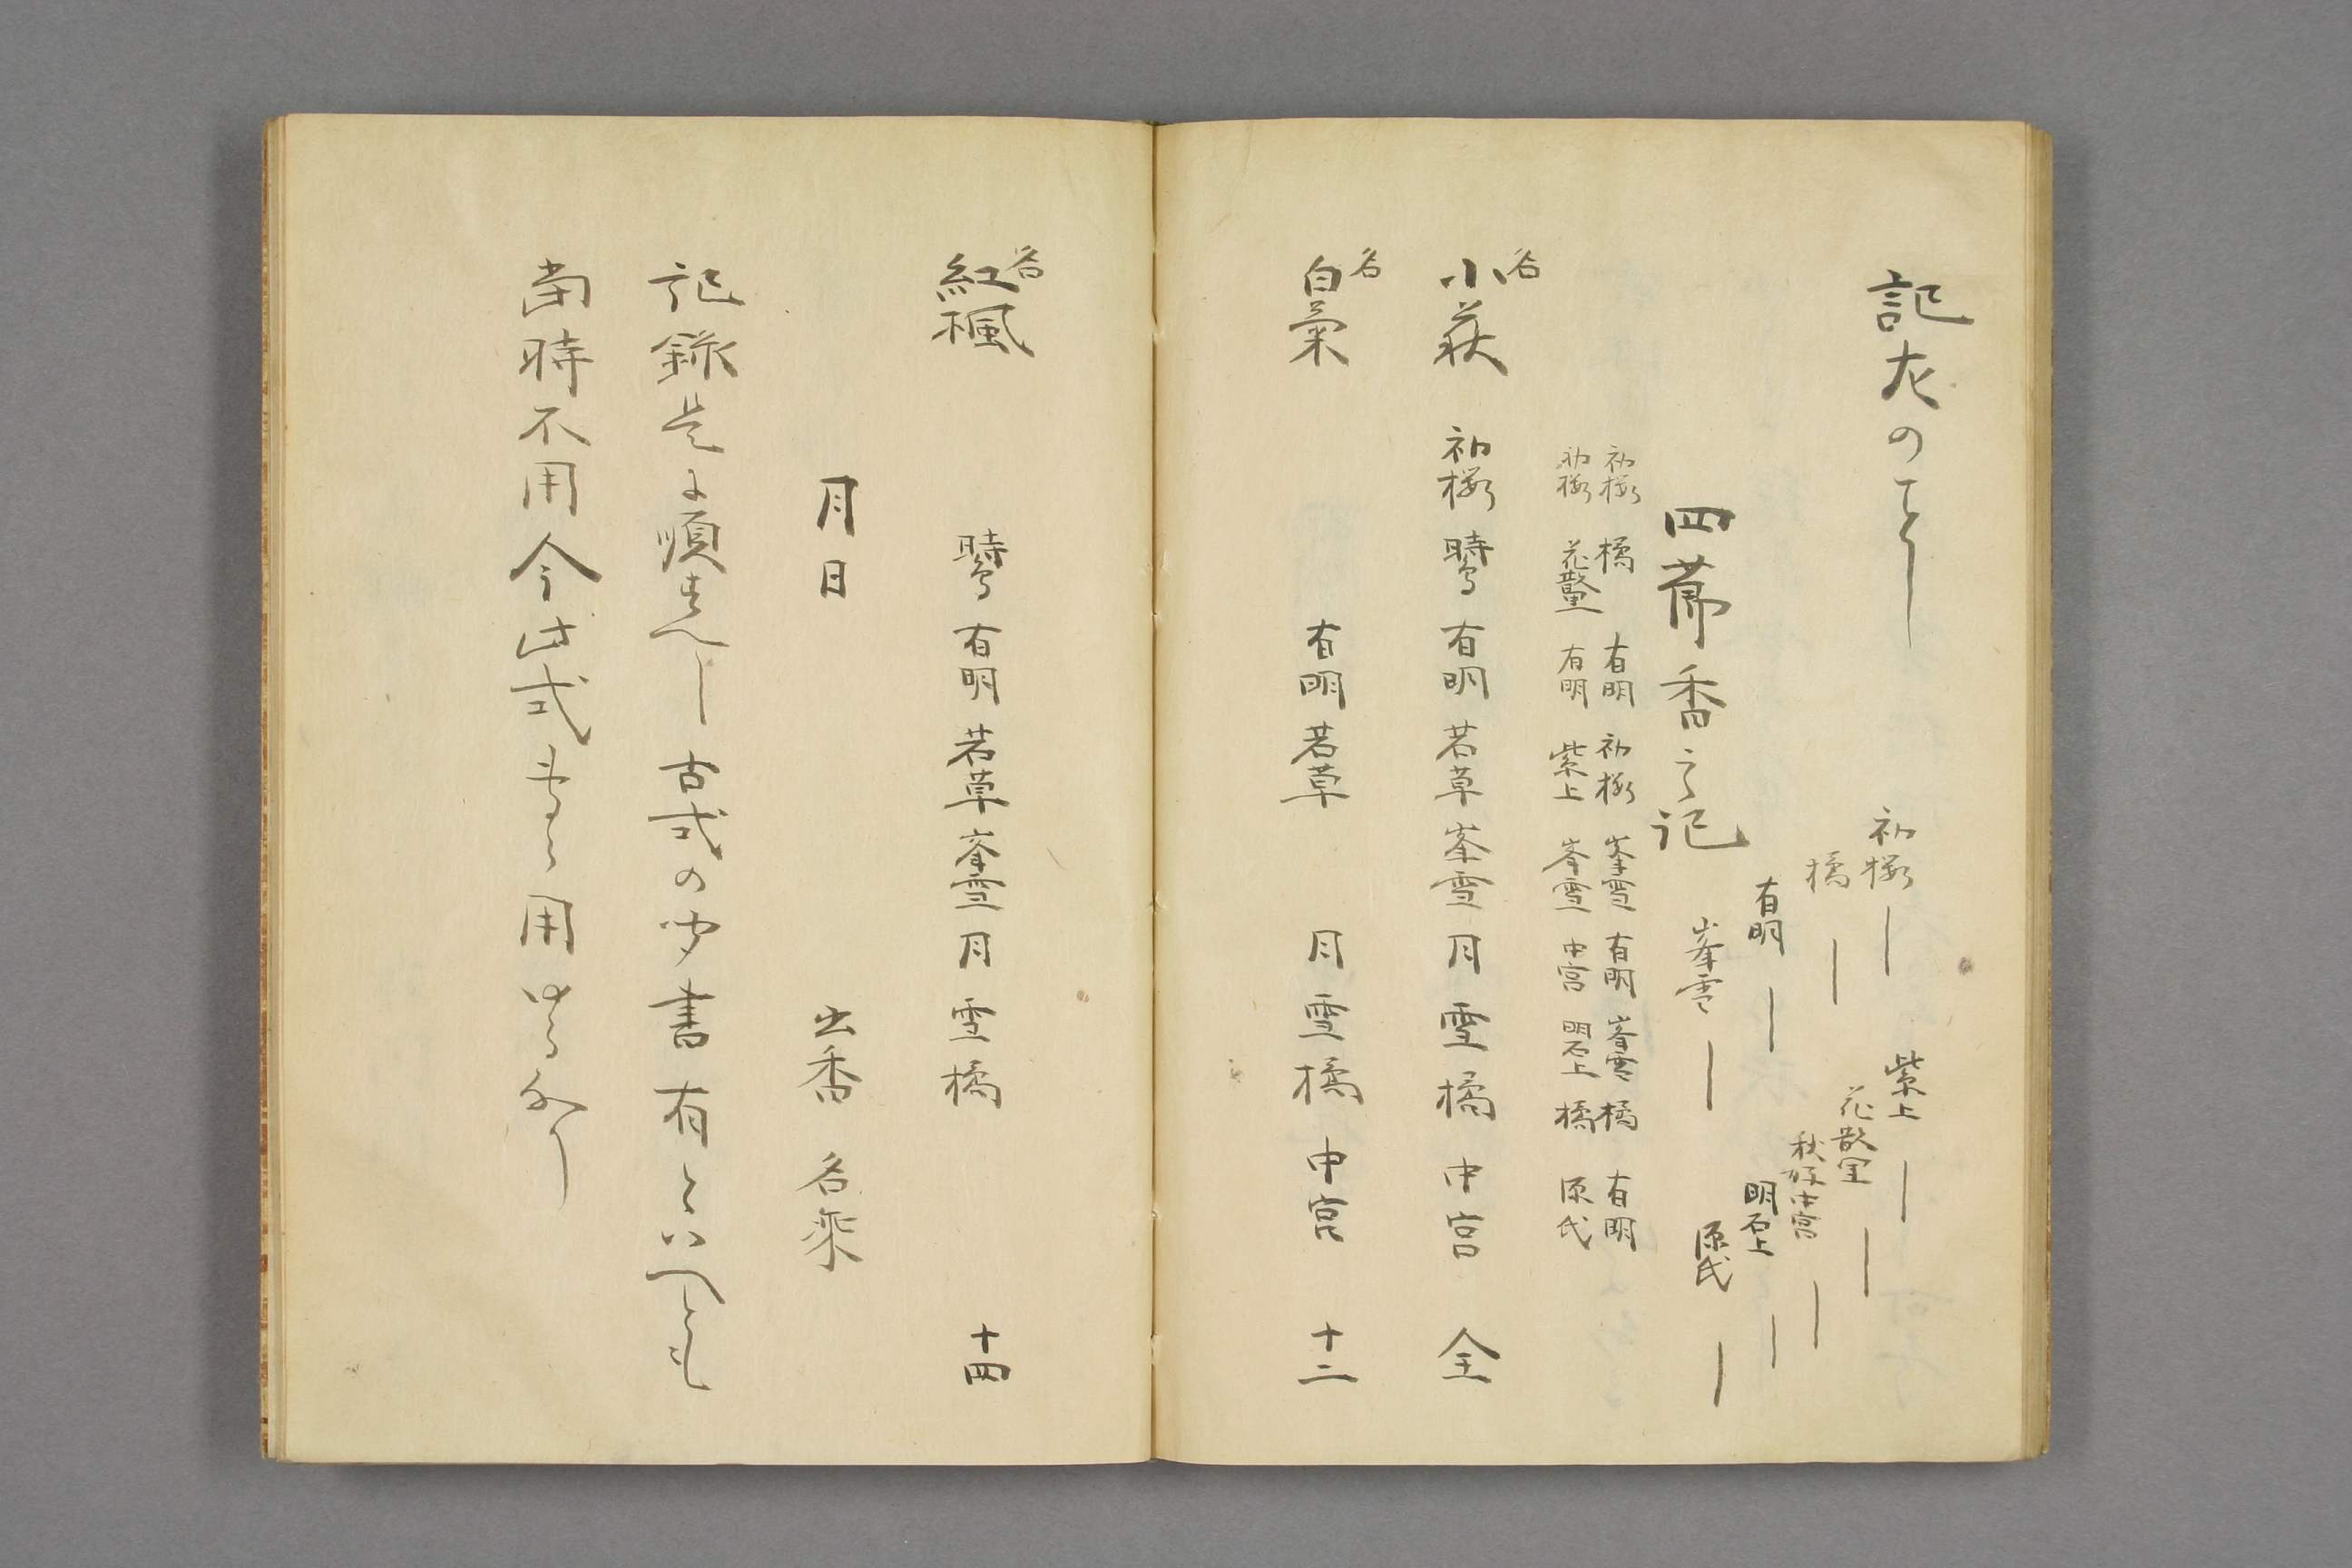 記左のことし
初桜 一 紫上 一
橘 一 花散里 一
有明 一 秋好中宮 一
峯雪 一 明石上 一
源氏 一
四節香之記
初桜 橘 有明 初桜 峯雪 有明 峯雪 橘 有明
初桜 花散里 有明 紫上 峯雪 中宮 明石上 橘 源氏
名
小萩 初桜 時鳥 有明 若草 峯雪 月 雪 橘 中宮 全
名
白菊 有明 若草 月 雪 橘 中宮 十二
名
紅楓 時鳥 有明 若草 峯雪 月 雪 橘 十四
月日
出香 名乗
記録是に順すへし古式の書有といへとも
当時不用今此式用